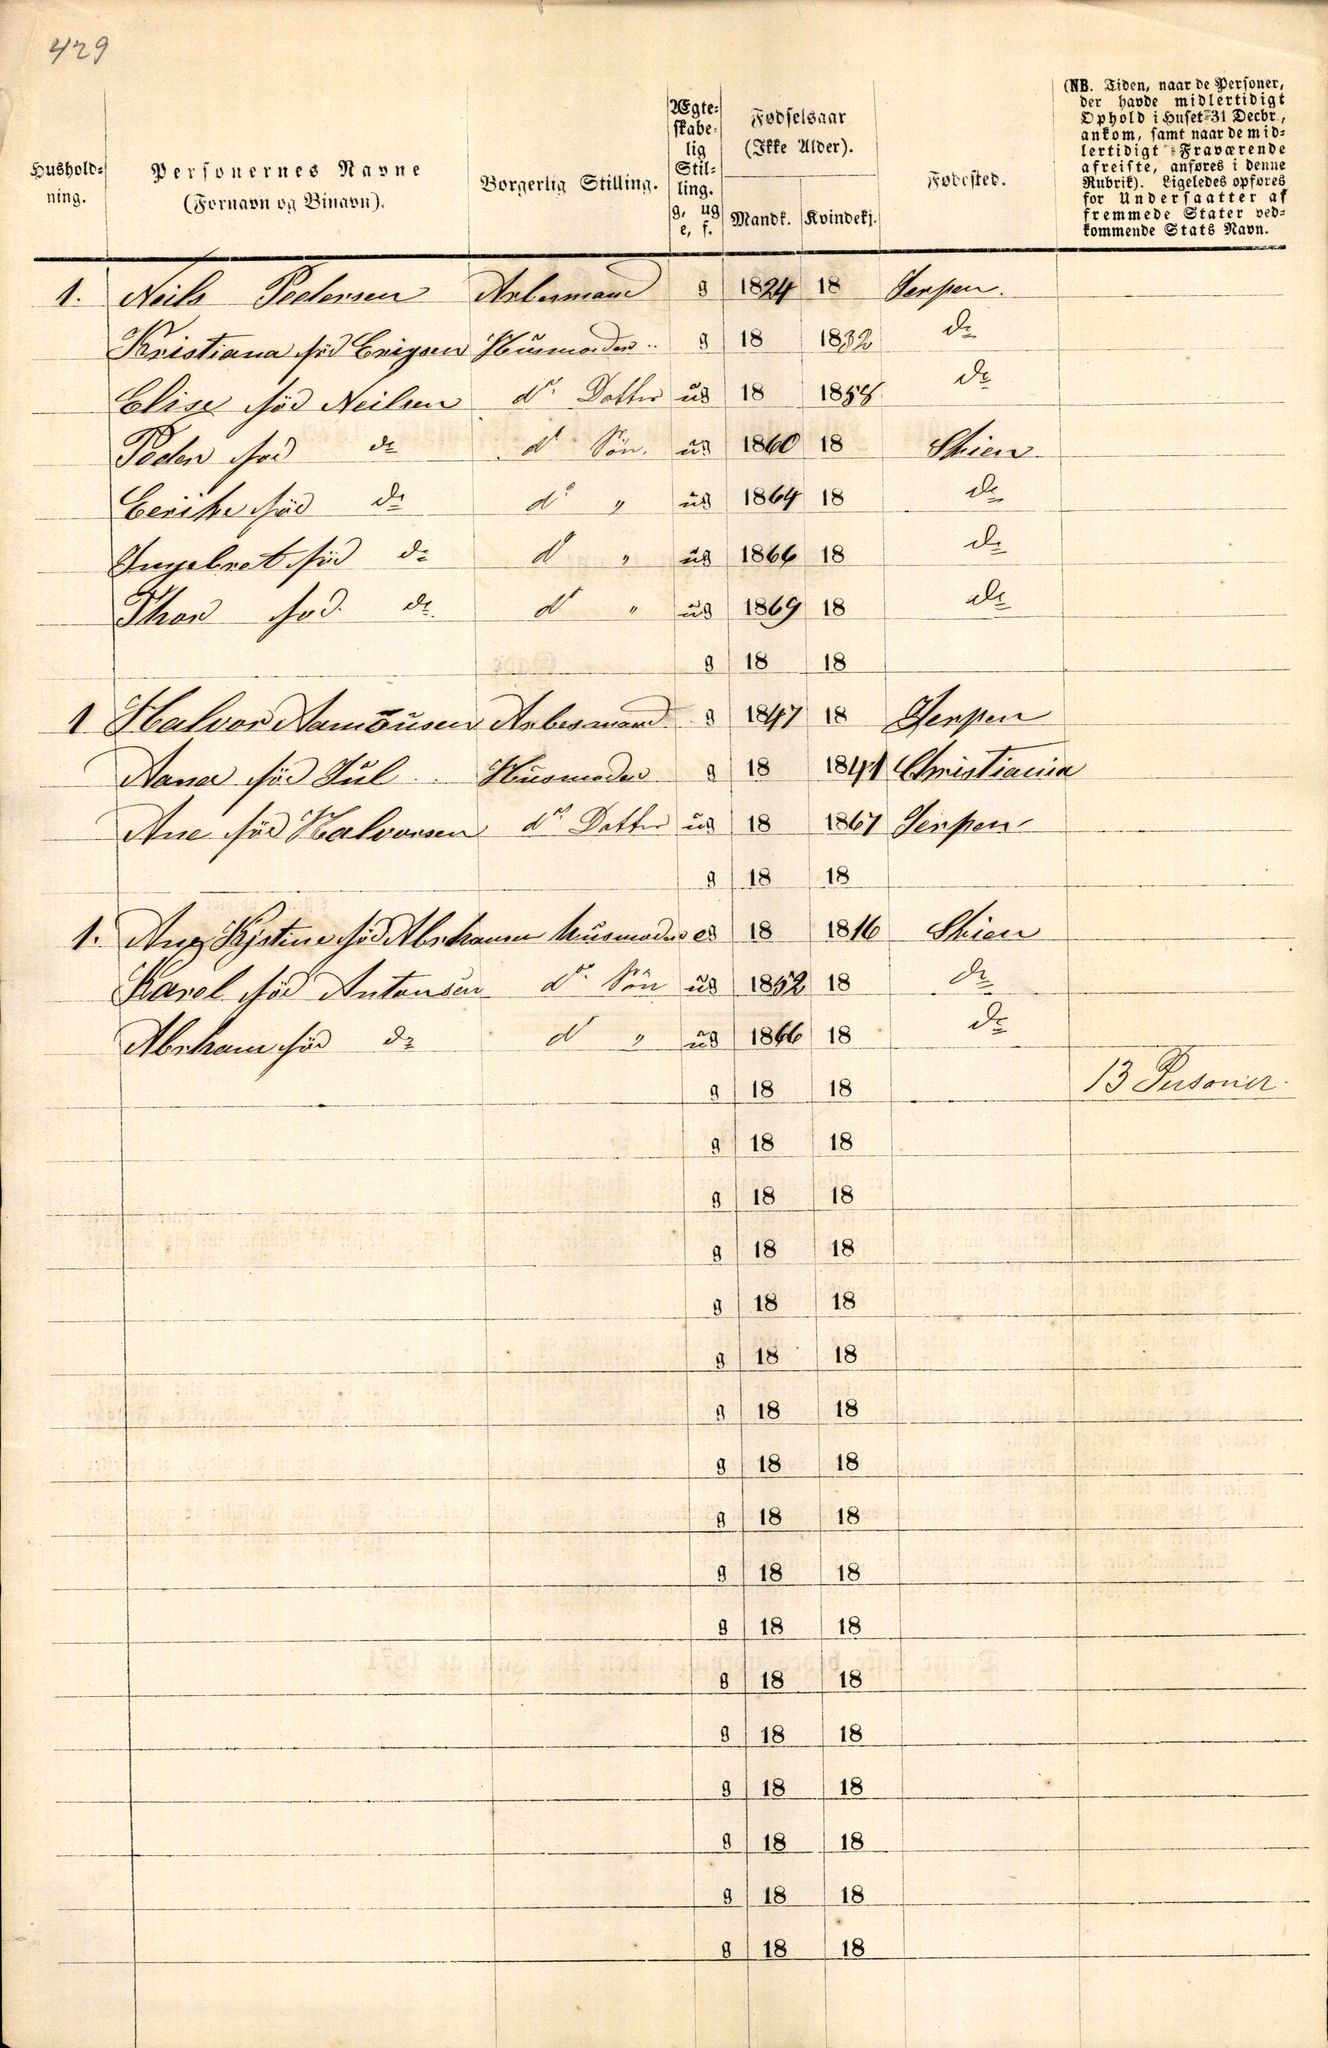 429
Hushold-
ning.
Personernes Navne
(Fornavn og Binavn).
Borgerlig Stilling.
Ægte-
skabe-
lig
Stil-
ling.
g, ug
e, f.
Fødselsaar
(Ikke Alder).
Mandk. Kvindekj.
Fødested.
(NB. Tiden, naar de Personer,
der havde midlertidigt
Ophold i Huset 31 Decbr.,
ankom, samt naar de mid-
lertidigt Fraværende
afreiste, anføres i denne
Rubrik). Ligeledes opføres
for Undersaatter af
fremmede Stater ved-
kommende Stats Navn.
1. Neils Pedersen Arbesmand g 1824 18 Jerpen.
Kristiana föd Erigsen Husmoder g 18 1832 do
Elise föd Neilsen do Datter ug 18 1858 do
Peder föd do do Sön. ug 1860 18 Skien
Eerike föd do do " ug 1864 18 do
Ingebret föd do do " ug 1866 18 do
Thor föd do do " ug 1869 18 do
g 18 18
1 Halvor Aamousen Arbesmand g 1847 18 Jerpen
Aana föd Jul Husmoder g 18 1841 Christiania
Ane föd Halvorsen do Datter ug 18 1867 Jerpen
g 18 18
1. Ane Kjstine föd Abrhamsen husmoder eg 18 1816 Skien
Karel föd Antonsen do Sön ug 1852 18 do
Abrham föd do do " ug 1866 18 do
g 18 18 13 Personer.
g 18 18
g 18 18
g 18 18
g 18 18
g 18 18
g 18 18
g 18 18
g 18 18
g 18 18
g 18 18
g 18 18
g 18 18
g 18 18
g 18 18
g 18 18
g 18 18